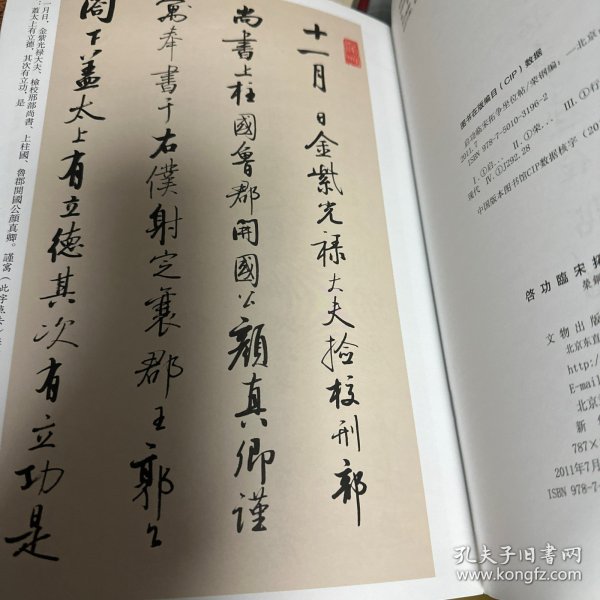 十一月日金紫光禄大夫捡校刑部
尚書上柱國魯郡開國公顔真卿謹
寓奉書于右僕射定襄郡王郭公
閤下盖太上有立德其次有立功是
一月日，金紫光禄大夫、檢校刑部尚書、上柱國、魯郡開國公顔真卿。謹寓（此字点去）
：蓋太上有立德，其次有立功，是
图书在版编目（CIP）数据
启功临宋拓争坐位帖/荣钢编；—北京
2011.7
ISBN 978-7-5010-3196-2
Ⅰ.①启… Ⅱ.①荣… Ⅲ.①行
现代 Ⅳ.①J292.28
中国版本图书馆CIP数据核字（20
啓功臨宋拓
文物出版
北京东直
http:/
E-mail
北京
新
787×
2011年7月
ISBN 978-7-
孔夫子旧书网
www.kongfz.com